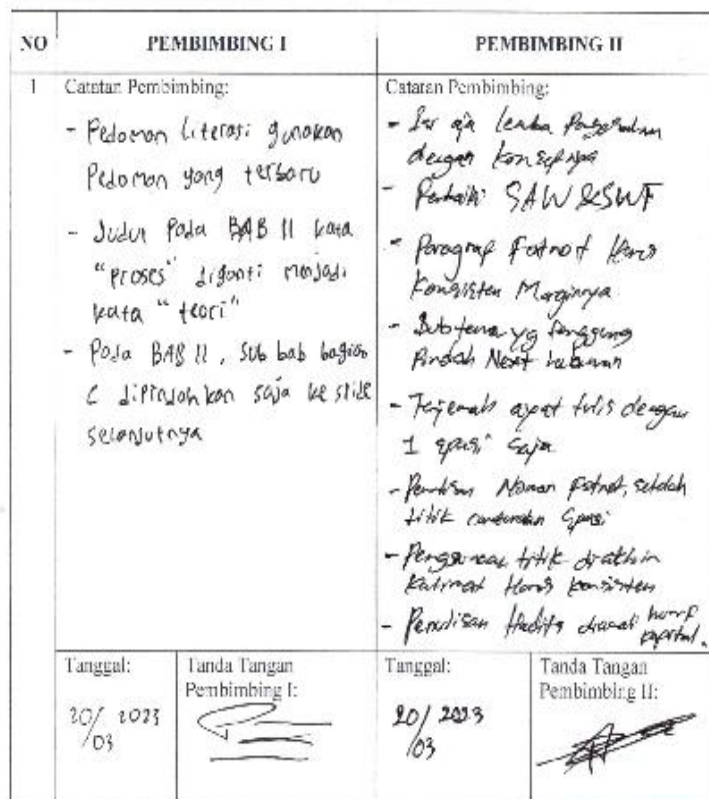 NO
PEMBIMBING I
PEMBIMBING II
1
Catatan Pembimbing:
- Pedoman Literasi gunakan
Pedoman yang terbaru
- Judul Pada BAB II kata
"Proses" diganti menjadi
kata "teori"
- Pada BAB II, Sub bab bagian
C dipindahkan saja ke slide
selanjutnya
Catatan Pembimbing:
- aja
dengan
- Perbaiki SAW & SWT
- Paragraf Fotnot Harus
Konsisten Marginnya
- Subtema yg
Pindah Next halaman
- Terjemah ayat tulis dengan
1 spasi saja
- Penulisan Nomor Fotnot, setelah
titik spasi
- Penggunaan titik diakhir
Kalimat Harus konsisten
- Penulisan Hadits diawali huruf
kapital.
Tanggal:
20/03 2023
Tanda Tangan
Pembimbing I:
Tanggal:
20/03 2023
Tanda Tangan
Pembimbing II: